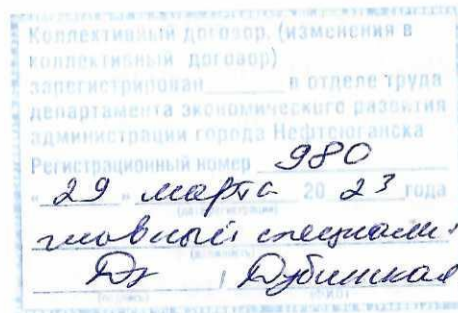 Коллективный договор, (изменения в
коллективный договор)
зарегистрирован________ в отделе труда
департамента экономического развития
администрации города Нефтеюганска
Регистрационный номер 980
"29" марта 20 23 года
главный специали
Дубинская
(подпись) (ФИО)